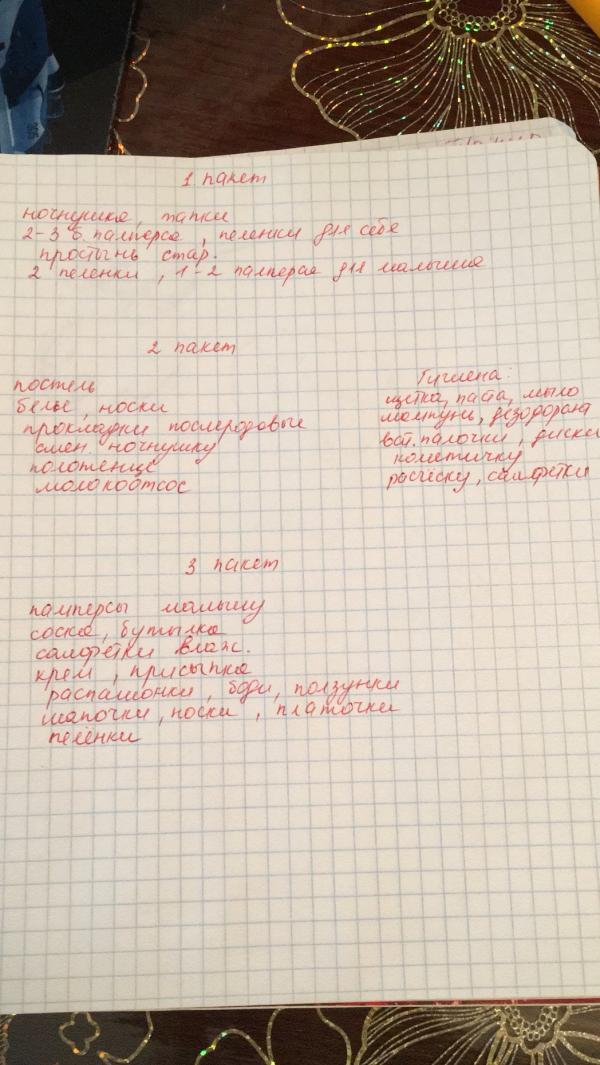 1 пакет
ночнушка, тапки
2-3 б. памперса, пеленки для себя
простынь стар.
2 пеленки, 1-2 памперса для малыша
2 пакет
постель
белье, носки
прокладки послеродовые
смен. ночнушку
полотенце
молокоотсос
Гигиена:
щетка, паста, мыло
шампунь, дезодорант
ват. палочки, диски
кометичку
расчёску, салфетки
3 пакет
памперсы малышу
соска, бутылка
салфетки влаж.
крем, присыпка
распашонки, боди, ползунки
шапочки, носки, платочки
пелёнки